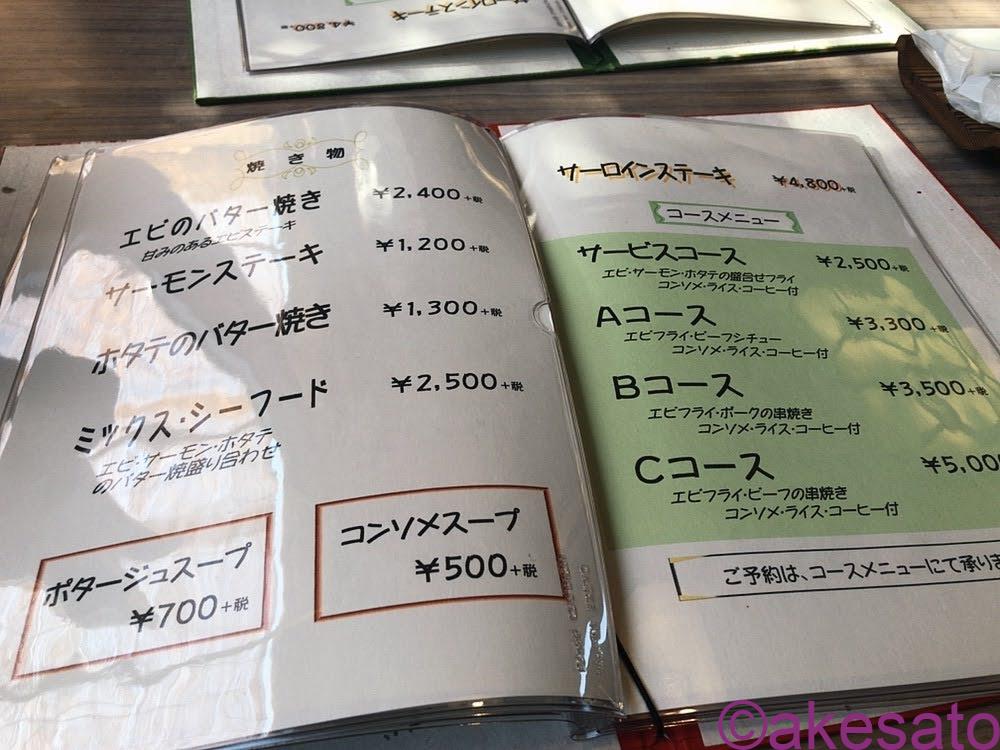 サーロインステーキ
¥4,800
焼き物
エビのバター焼き ¥2,400+税
甘みのあるエビステーキ
サーモンステーキ ¥1,200+税
ホタテのバター焼き ¥1,300+税
ミックス・シーフード ¥2,500+税
エビ・サーモン・ホタテ
のバター焼盛り合わせ
ポタージュスープ
¥700+税
コンソメスープ
¥500+税
サーロインステーキ ¥4,800+税
コースメニュー
サービスコース ¥2,500+税
エビ・サーモン・ホタテの盛合せフライ
コンソメ・ライス・コーヒー付
Aコース ¥3,300+税
エビフライ・ビーフシチュー
コンソメ・ライス・コーヒー付
Bコース ¥3,500+税
エビフライ・ポークの串焼き
コンソメ・ライス・コーヒー付
Cコース ¥5,00
エビフライ・ビーフの串焼き
コンソメ・ライス・コーヒー付
ご予約は、コースメニューにて承りま
©akesato